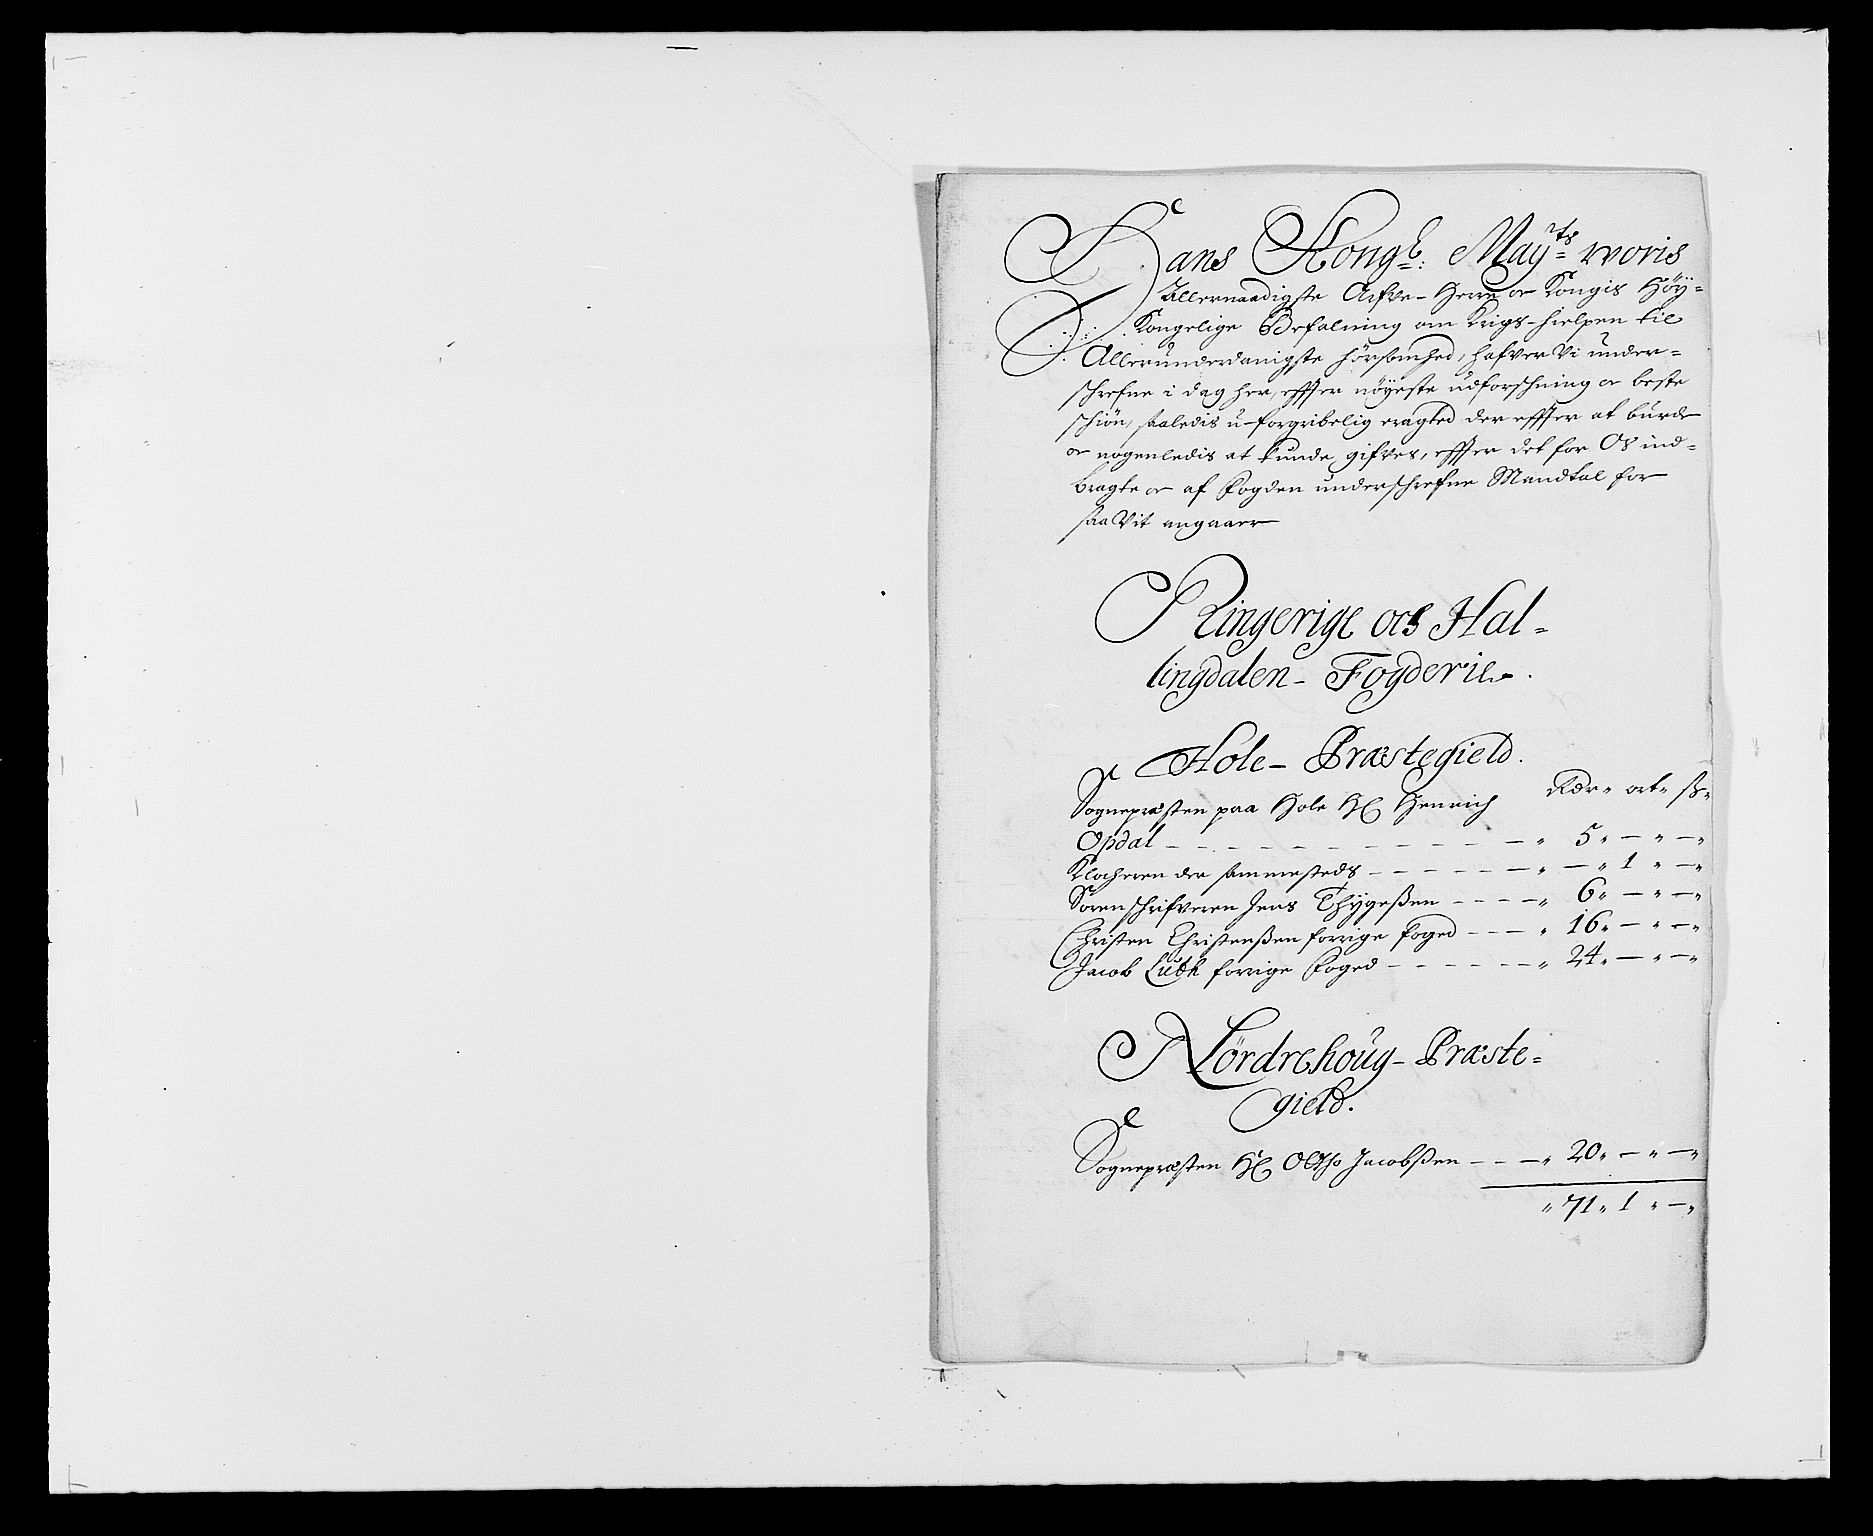 Hans Kongl: Mayts woris
Allernaadigste Arfve-Herre oc Kongis Höÿ=
Kongelige Befalning om Krigs-hielpen til
Allerunderdanigste hörsomhed, hafver Vi under=
schrefne i dag her, effter nöÿeste udforschning oc beste
schiön, saaledis u-forgribelig eragted der effter at burde
oc nogenledis at kunde gifves, effter det for Os ind=
bragte oc af Fogden underschrefne Mandtal for
saa Vit angaaer
Ringerige och Hal=
lingdalen-Fogderie.
Hole-Præstegield.
Rdr" ort" ss"
Sognepræsten paa Hole Hr Henrich
Opdal - - - - - - - - - - - " 5" — " — "
Klocheren der sammesteds - - - - - - " — " 1 " — "
Sorenschrifveren Jens Thygeßen - - - - " 6" — " — "
Christen Christenßen forrige Foged - - - " 16" — " — "
Jacob Luth forrige Foged - - - - - - " 24" — " — "
Nordrehoug-Præste=
gield.
Sognepræsten Hr Oltho Jacobßen - - - " 20" — " — "
" 71" 1 " — "